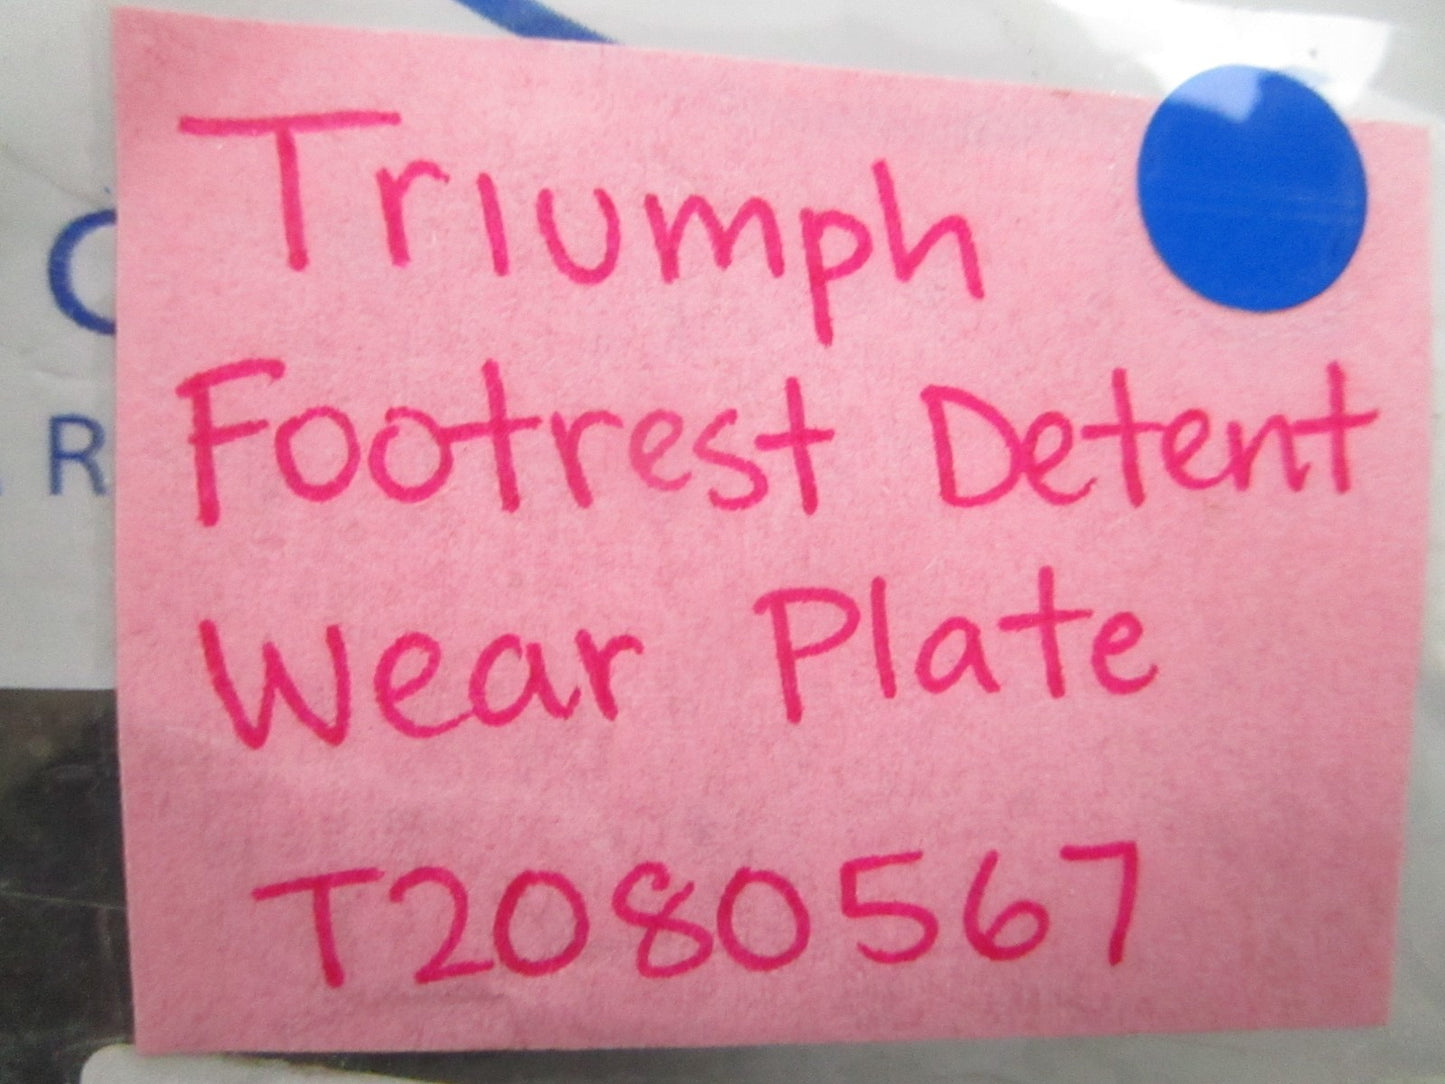 Triumph
Footrest Detent
Wear Plate
T2080567